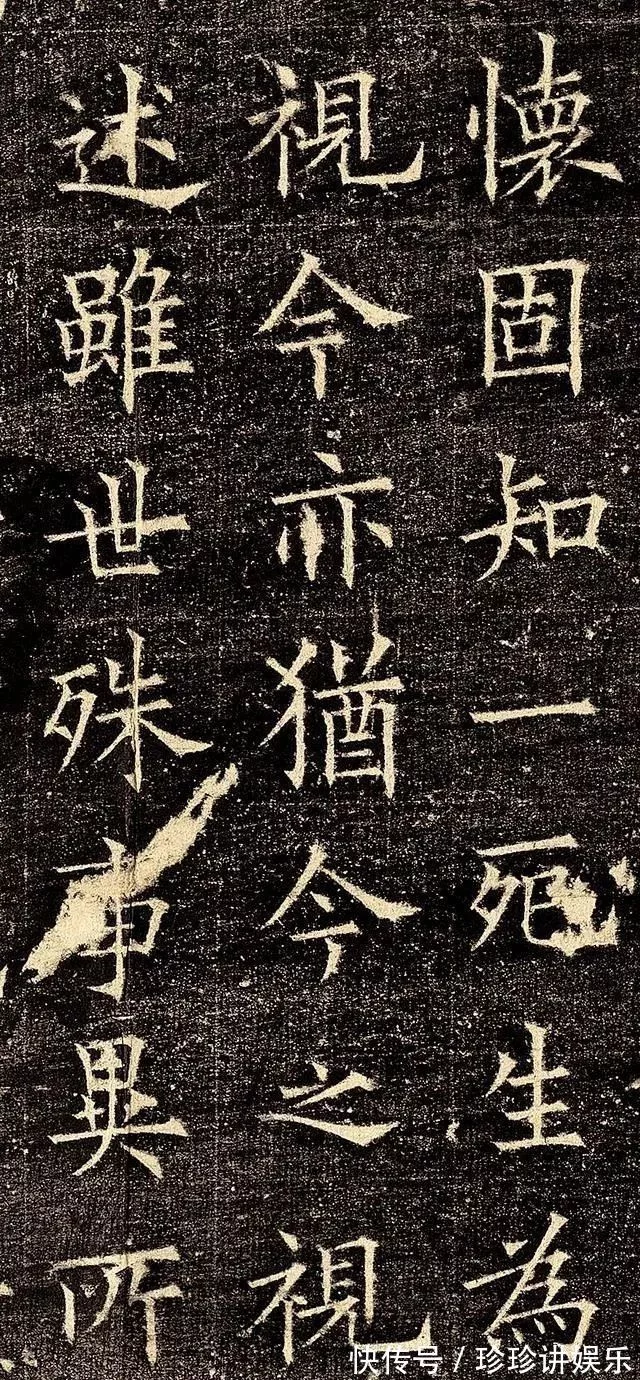 懷固知一死生為
視今亦猶今之視
述雖世殊事異所
快传号 / 珍珍讲娱乐